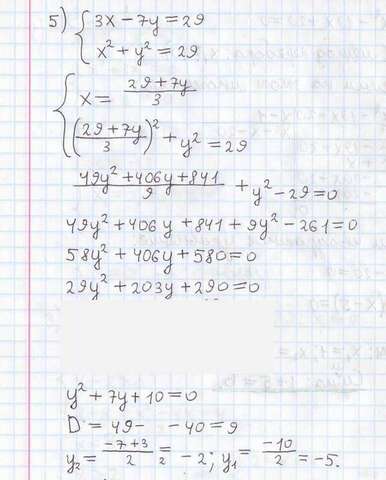 5) { 3x - 7y = 29
x² + y² = 29
{ x = (29 + 7y)/3
((29 + 7y)/3)² + y² = 29
(49y² + 406y + 841)/9 + y² - 29 = 0
49y² + 406y + 841 + 9y² - 261 = 0
58y² + 406y + 580 = 0
29y² + 203y + 290 = 0
y² + 7y + 10 = 0
D = 49 - - 40 = 9
y₂ = (-7 + 3)/2 = -2; y₁ = -10/2 = -5.